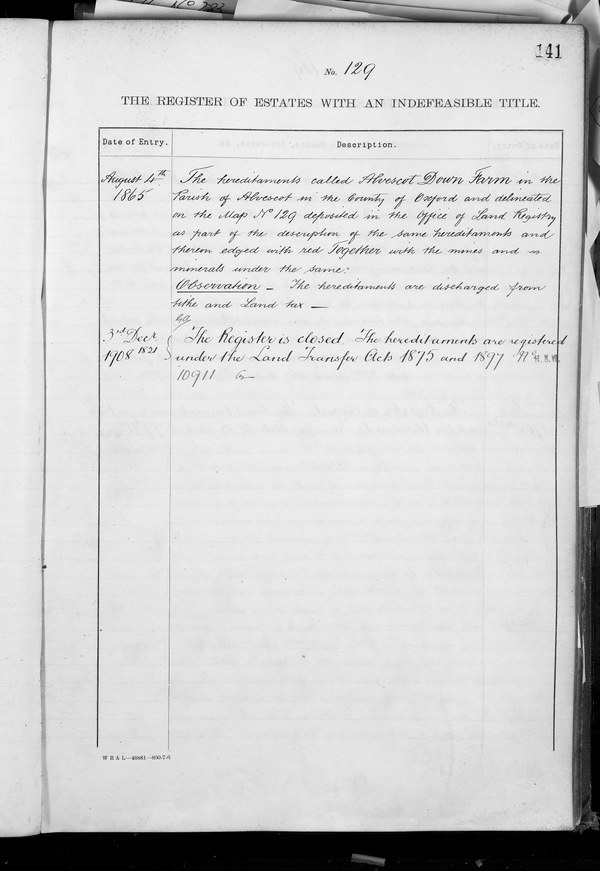 141
No. 129
THE REGISTER OF ESTATES WITH AN INDEFEASIBLE TITLE.
Date of Entry.
Description.
August 4th
1865
The hereditaments called Alvescot Down Farm in the
Parish of Alvescot in the County of Oxford and delineated
on the Map No 129 deposited in the Office of Land Registry
as part of the description of the same hereditaments and
thereon edged with red Together with the mines and
minerals under the same.
Observation — The hereditaments are discharged from
tithe and Land tax —
3rd Decr
1908 1821
The Register is closed. The hereditaments are registered
under the Land Transfer Acts 1875 and 1897 No
10911
W B & L—49881—800-7-6